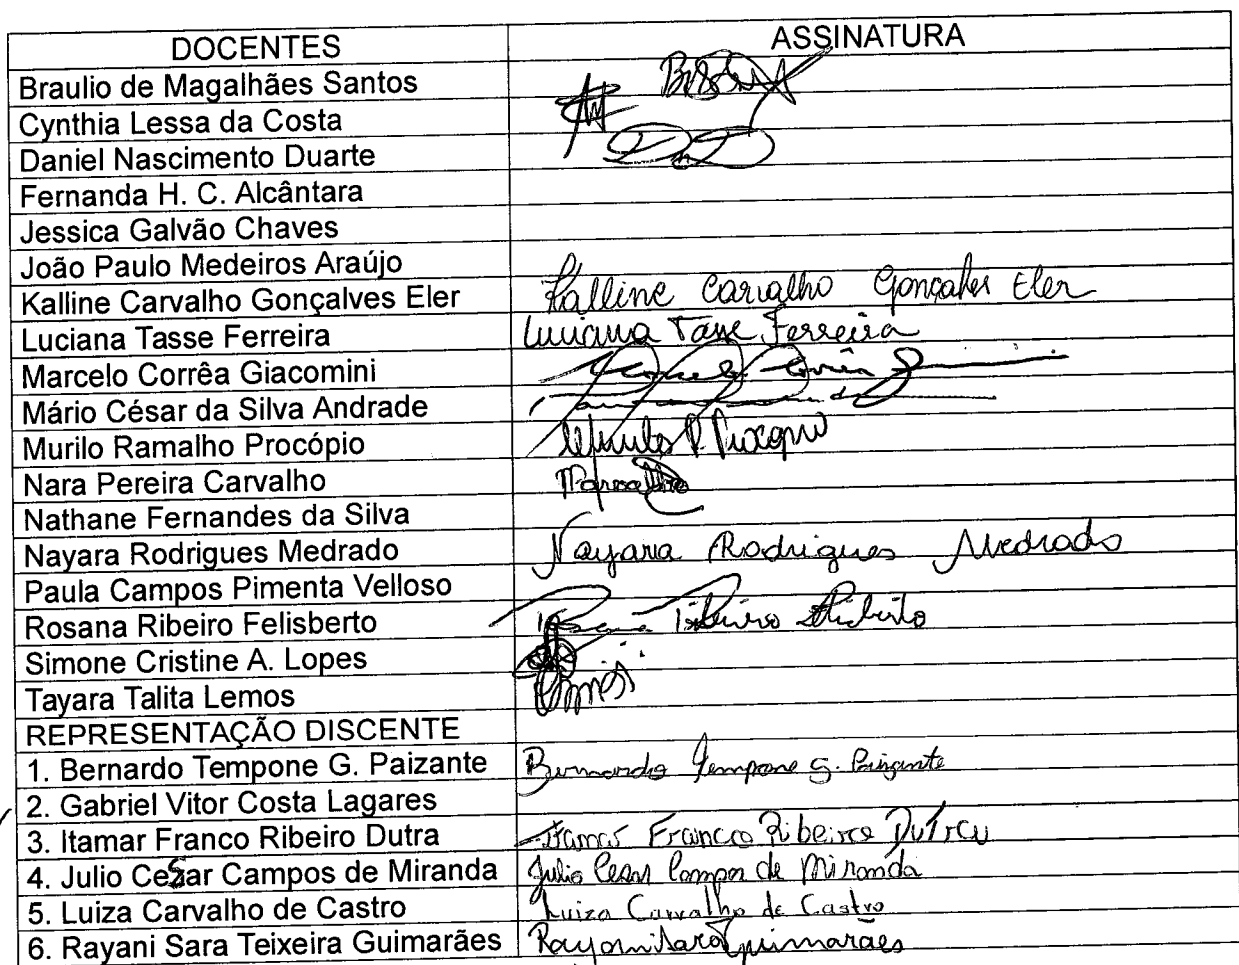 DOCENTES ASSINATURA
Braulio de Magalhães Santos
Cynthia Lessa da Costa
Daniel Nascimento Duarte
Fernanda H. C. Alcântara
Jessica Galvão Chaves
João Paulo Medeiros Araújo
Kalline Carvalho Gonçalves Eler Kalline Carvalho Gonçalves Eler
Luciana Tasse Ferreira Luciana Tasse Ferreira
Marcelo Corrêa Giacomini
Mário César da Silva Andrade
Murilo Ramalho Procópio Murilo R. Procópio
Nara Pereira Carvalho
Nathane Fernandes da Silva
Nayara Rodrigues Medrado Nayara Rodrigues Medrado
Paula Campos Pimenta Velloso
Rosana Ribeiro Felisberto Rosana Ribeiro Felisberto
Simone Cristine A. Lopes
Tayara Talita Lemos
REPRESENTAÇÃO DISCENTE
1. Bernardo Tempone G. Paizante Bernardo Tempone G. Paizante
2. Gabriel Vitor Costa Lagares
3. Itamar Franco Ribeiro Dutra Itamar Franco Ribeiro Dutra
4. Julio Cesar Campos de Miranda Julio Cesar Campos de Miranda
5. Luiza Carvalho de Castro Luiza Carvalho de Castro
6. Rayani Sara Teixeira Guimarães Rayani Sara T Guimarães